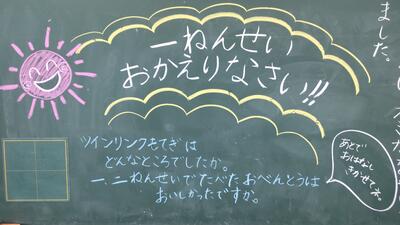 一ねんせい
おかえりなさい!!
ツインリンクもてぎは
どんなところでしたか。
一、二ねんせいでたべたおべんとうは
おいしかったですか。
あとで
おはなし
きかせてネ。
ました。